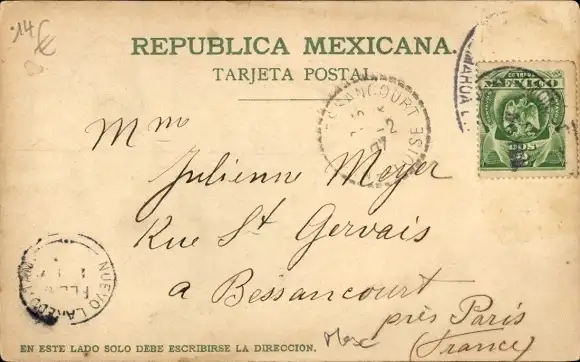 14 €
REPUBLICA MEXICANA.
TARJETA POSTAL
BESSANCOURT
OISE
MEXICO
DOS
Mme
Julienne Moyer
Rue St Gervais
a Bessancourt
près Paris
(France)
NUEVO LAREDO
Mex
EN ESTE LADO SOLO DEBE ESCRIBIRSE LA DIRECCION.